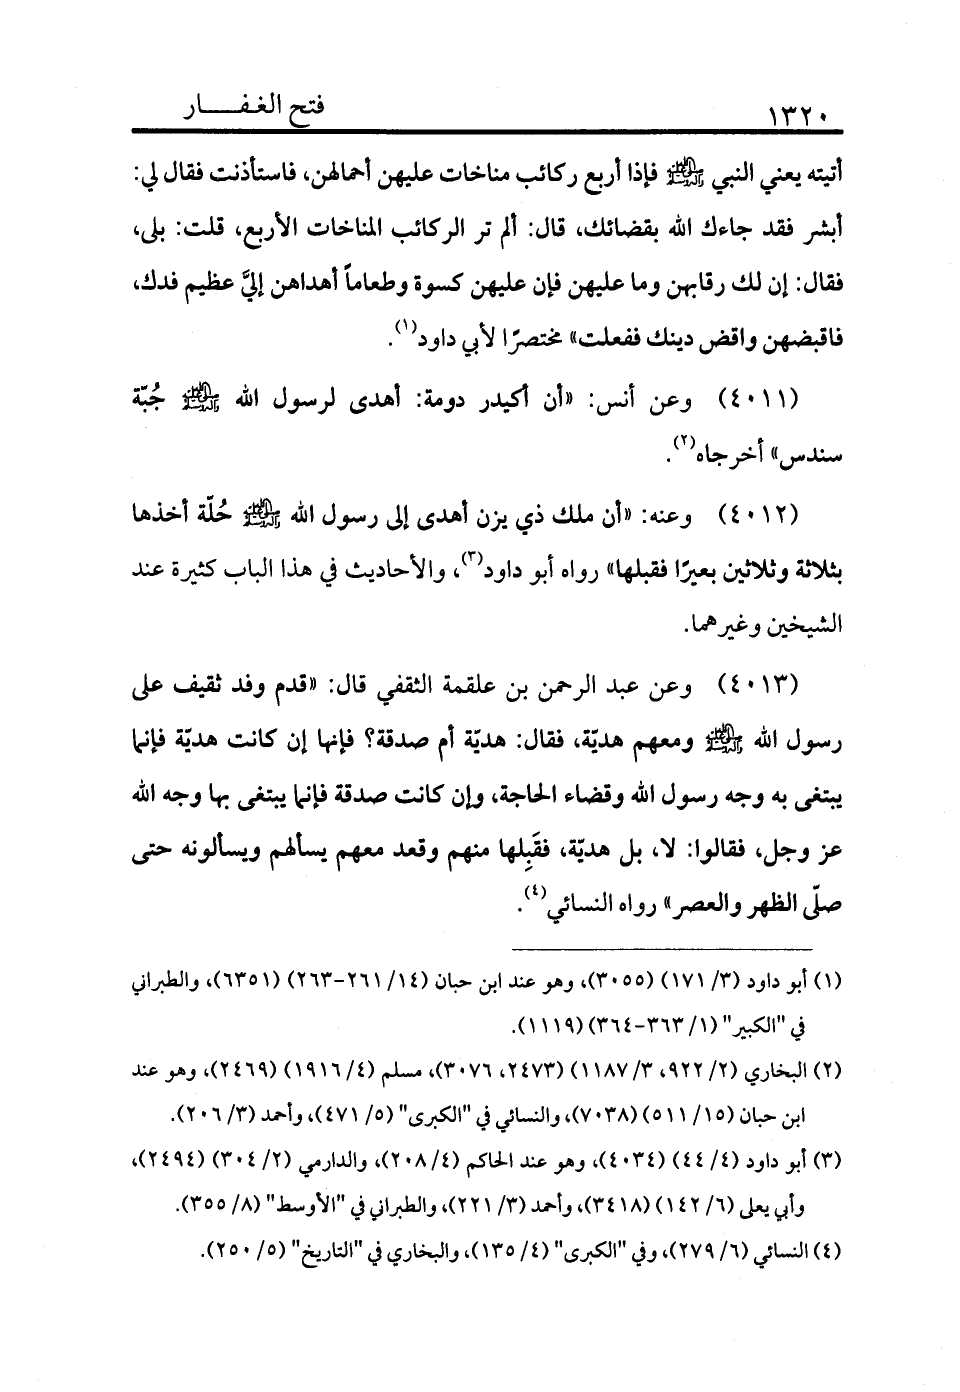 ١٣٢٠
فتح الغفـــــار
أتيته يعني النبي ﷺ فإذا أربع ركائب مناخات عليهن أحمالهن، فاستأذنت فقال لي:
أبشر فقد جاءك الله بقضائك، قال: ألم تر الركائب المناخات الأربع، قلت: بلى،
فقال: إن لك رقابهن وما عليهن فإن عليهن كسوة وطعاماً أهداهن إليَّ عظيم فدك،
فاقبضهن واقض دينك ففعلت» مختصرًا لأبي داود(١).
(٤٠١١) وعن أنس: «أن أكيدر دومة: أهدى لرسول الله ﷺ جُبّة
سندس» أخرجاه(٢).
(٤٠١٢) وعنه: «أن ملك ذي يزن أهدى إلى رسول الله ﷺ حُلّة أخذها
بثلاثة وثلاثين بعيرًا فقبلها» رواه أبو داود(٣)، والأحاديث في هذا الباب كثيرة عند
الشيخين وغيرهما.
(٤٠١٣) وعن عبد الرحمن بن علقمة الثقفي قال: «قدم وفد ثقيف على
رسول الله ﷺ ومعهم هديّة، فقال: هديّة أم صدقة؟ فإنها إن كانت هديّة فإنما
يبتغى به وجه رسول الله وقضاء الحاجة، وإن كانت صدقة فإنما يبتغى بها وجه الله
عز وجل، فقالوا: لا، بل هديّة، فقَبِلها منهم وقعد معهم يسألهم ويسألونه حتى
صلّى الظهر والعصر» رواه النسائي(٤).
(١) أبو داود (٣/ ١٧١) (٣٠٥٥)، وهو عند ابن حبان (١٤/ ٢٦١-٢٦٣) (٦٣٥١)، والطبراني
في "الكبير" (١/ ٣٦٣-٣٦٤) (١١١٩).
(٢) البخاري (٢/ ٩٢٢، ٣/ ١١٨٧) (٢٤٧٣، ٣٠٧٦)، مسلم (٤/ ١٩١٦) (٢٤٦٩)، وهو عند
ابن حبان (١٥/ ٥١١) (٧٠٣٨)، والنسائي في "الكبرى" (٥/ ٤٧١)، وأحمد (٣/ ٢٠٦).
(٣) أبو داود (٤/ ٤٤) (٤٠٣٤)، وهو عند الحاكم (٤/ ٢٠٨)، والدارمي (٢/ ٣٠٤) (٢٤٩٤)،
وأبي يعلى (٦/ ١٤٢) (٣٤١٨)، وأحمد (٣/ ٢٢١)، والطبراني في "الأوسط" (٨/ ٣٥٥).
(٤) النسائي (٦/ ٢٧٩)، وفي "الكبرى" (٤/ ١٣٥)، والبخاري في "التاريخ" (٥/ ٢٥٠).